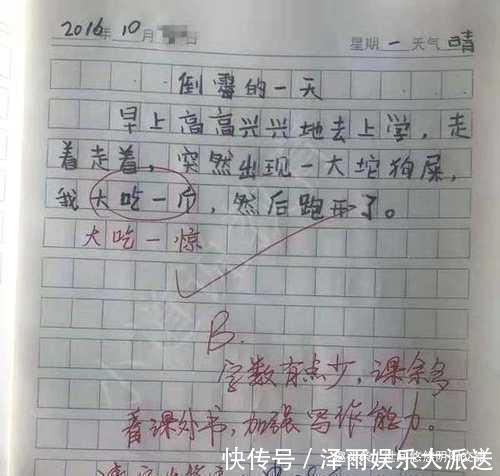 2016年10月 日 星期一 天气晴
倒霉的一天
早上高高兴兴地去上学，走
着走着，突然出现一大坨狗屎，
我大吃一斤，然后跑开了。
大吃一惊
B.
字数有点少，课余多
看课外书，加强写作能力。
快传号/泽雨娱乐大派送